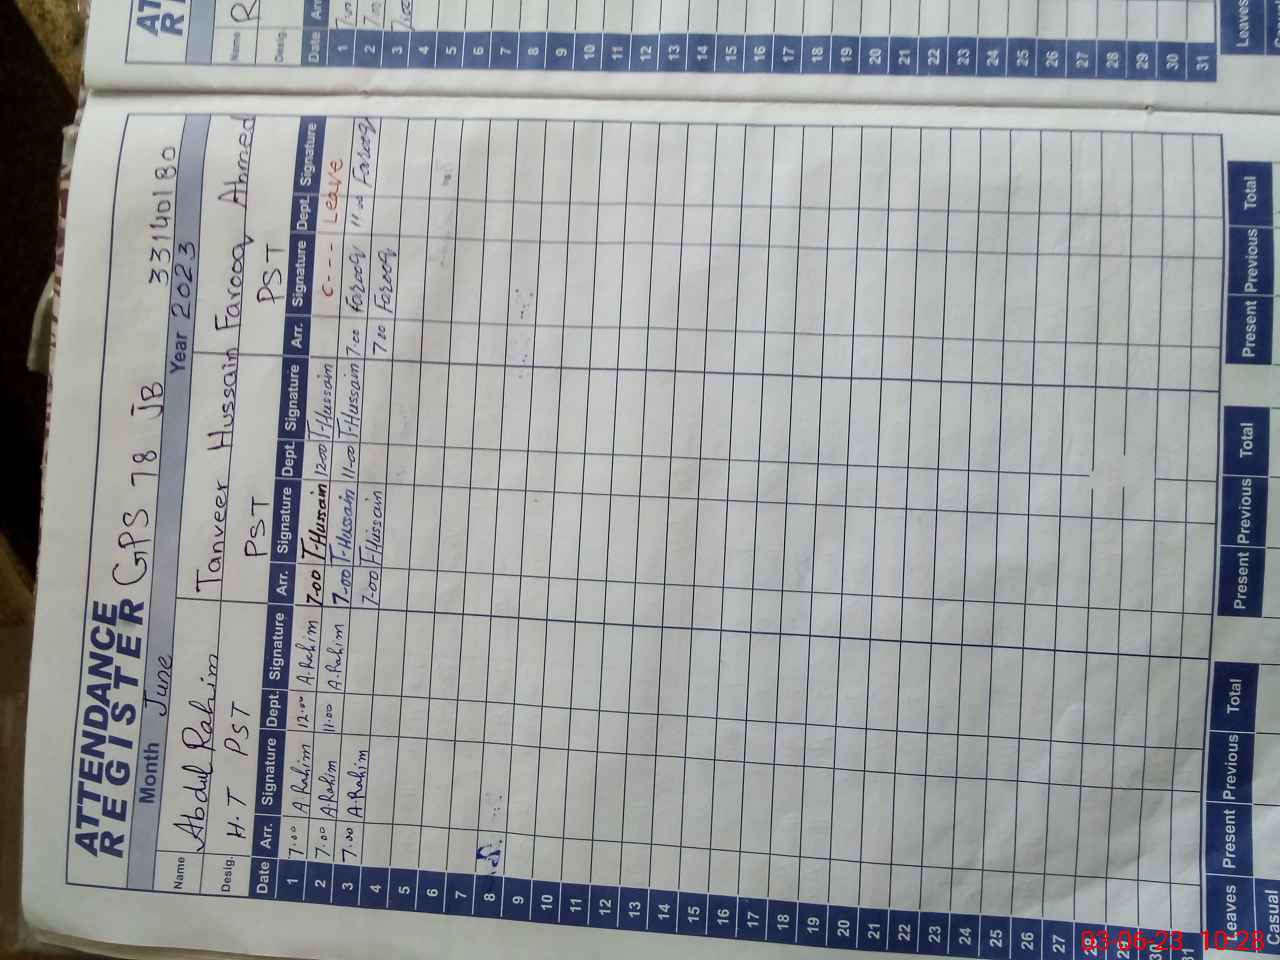 ATTENDANCE
REGISTER GPS 78 JB 33140180
Month June Year 2023
Name Abdul Rahim Tanveer Hussain Farooq Ahmed
Desig. H.T PST PST PST
Date Arr. Signature Dept. Signature Arr. Signature Dept. Signature Arr. Signature Dept. Signature
1 7.00 A Rahim 12.00 A.Rahim 7.00 T.Hussain 12.00 T.Hussain C---- Leave
2 7.00 A.Rahim 11.00 A.Rahim 7.00 T.Hussain 11.00 T.Hussain 7.00 Farooq 11.00 Farooq
3 7.00 A.Rahim 7.00 T.Hussain 7.00 Farooq
4
5
6
7
8
9
10
11
12
13
14
15
16
17
18
19
20
21
22
23
24
25
26
27
28
29
30
31
Leaves Present Previous Total Present Previous Total Present Previous Total
Casual
AT
RI
Name R
Desig.
Date Arr
1 7.00
2 7.00
3 7.00
4
5
6
7
8
9
10
11
12
13
14
15
16
17
18
19
20
21
22
23
24
25
26
27
28
29
30
31
Leaves
03-06-23 10:28